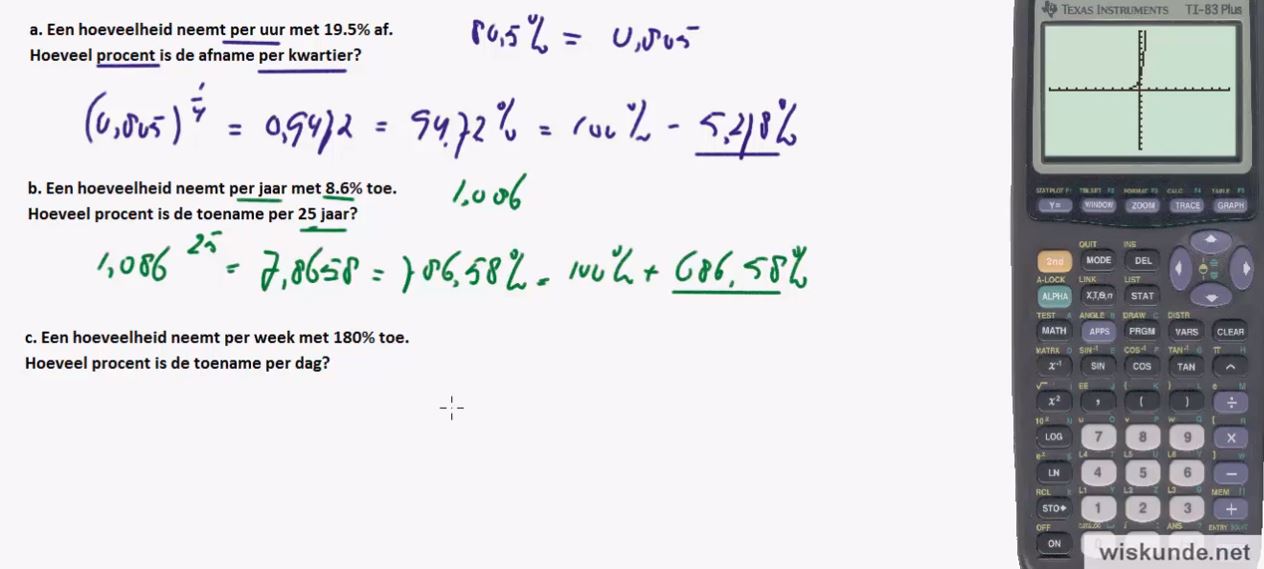 a. Een hoeveelheid neemt per uur met 19.5% af. 80,5% = 0,805
Hoeveel procent is de afname per kwartier?
(0,805)^1/4 = 0,9472 = 94,72% = 100% - 5,28%
b. Een hoeveelheid neemt per jaar met 8.6% toe. 1,086
Hoeveel procent is de toename per 25 jaar?
1,086 25 = 7,8658 = 786,58% = 100% + 686,58%
c. Een hoeveelheid neemt per week met 180% toe.
Hoeveel procent is de toename per dag?
TEXAS INSTRUMENTS TI-83 Plus
STAT PLOT F1 TBLSET F2 FORMAT F3 CALC F4 TABLE F5
Y= WINDOW ZOOM TRACE GRAPH
QUIT INS
2nd MODE DEL
A-LOCK LINK LIST
ALPHA X,T,θ,n STAT
TEST A ANGLE B DRAW C DISTR
MATH APPS PRGM VARS CLEAR
MATRX D SIN⁻¹ E COS⁻¹ F TAN⁻¹ G π H
x⁻¹ SIN COS TAN ^
√ I EE J { K } L e M
x² , ( ) ÷
10ˣ N u O v P w Q [ R
LOG 7 8 9 ×
eˣ S L4 T L5 U L6 V ] W
LN 4 5 6 −
RCL X L1 Y L2 Z L3 θ MEM "
STO▸ 1 2 3 +
OFF CATALOG i ANS ?
ON
wiskunde.net